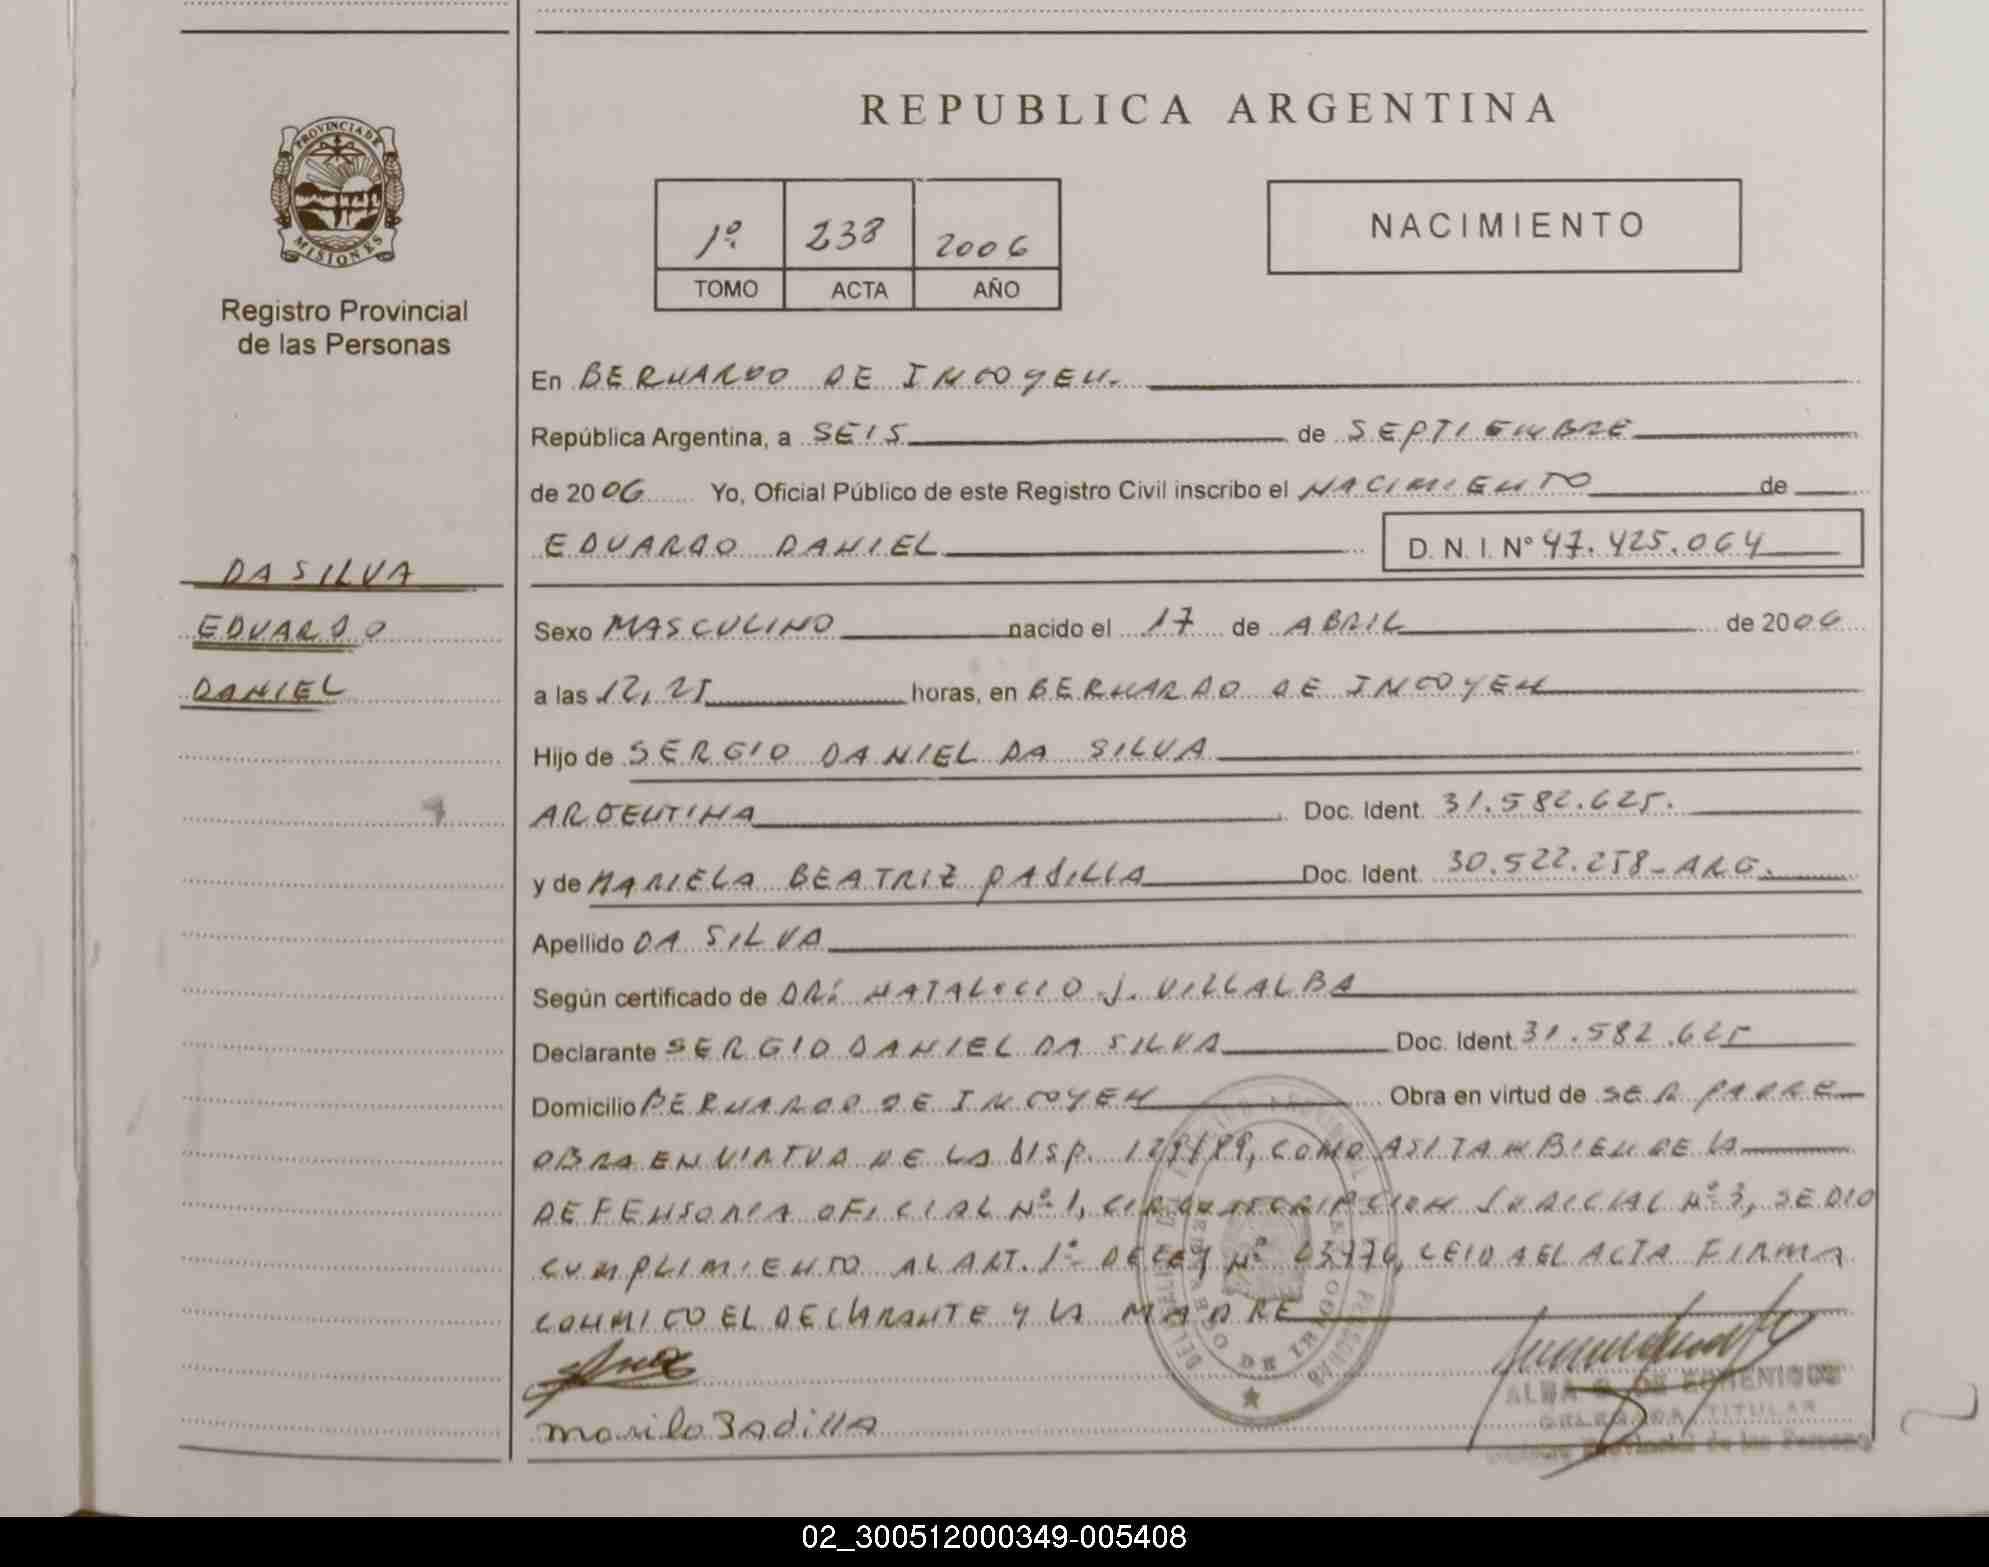 REPUBLICA ARGENTINA
PROVINCIA DE MISIONES
Registro Provincial
de las Personas
1º 238 2006
TOMO ACTA AÑO
NACIMIENTO
En BERNARDO DE IRIGOYEN.
República Argentina, a SEIS de SEPTIEMBRE
de 2006 Yo, Oficial Público de este Registro Civil inscribo el NACIMIENTO de
EDUARDO DANIEL D. N. I. Nº 47.425.064
DA SILVA
EDUARDO
DANIEL
Sexo MASCULINO nacido el 17 de ABRIL de 2006
a las 12,25 horas, en BERNARDO DE IRIGOYEN
Hijo de SERGIO DANIEL DA SILVA
ARGENTINA Doc. Ident. 31.582.625.
y de MARIELA BEATRIZ PADILLA Doc. Ident. 30.522.258-ARG.
Apellido DA SILVA
Según certificado de DR: NATALICIO J. VILLALBA
Declarante SERGIO DANIEL DA SILVA Doc. Ident. 31.582.625
Domicilio BERNARDO DE IRIGOYEN Obra en virtud de SER PADRE
OBRA EN VIRTUD DE LA DISP. 129/89, COMO ASI TAMBIEN DE LA
DEFENSORIA OFICIAL Nº 1, CIRCUNSCRIPCION JUDICIAL Nº 3, SE DIO
CUMPLIMIENTO AL ART. 1º DE LEY Nº LEIDA EL ACTA FIRMA
CONMIGO EL DECLARANTE Y LA MADRE
Mariela Padilla
ALBA DE DOMENIQUE
DELEGADA TITULAR
Registro Provincial de las Personas
02_300512000349-005408